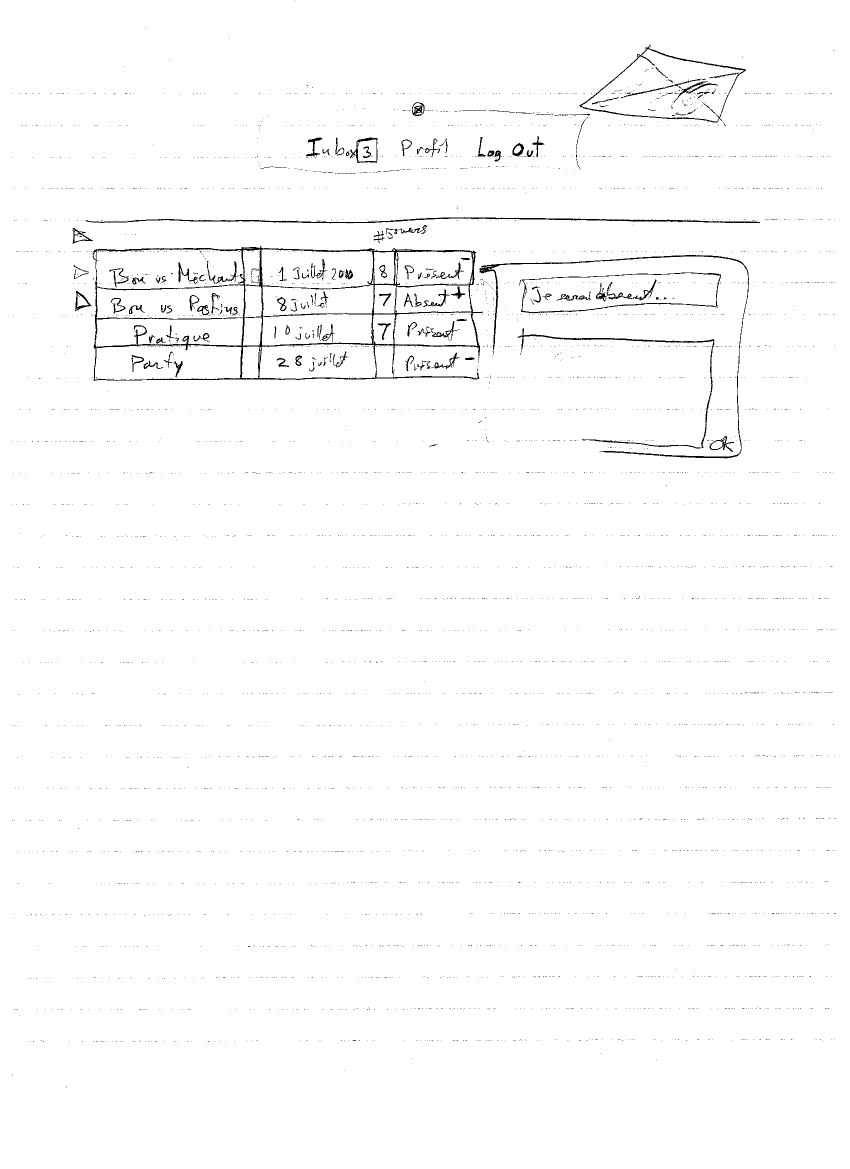 Inbox 3 Profil Log Out
Bon vs Méchants 1 Juillet 2010 8 Présent -
Bon vs Pas Fins 8 juillet 7 Absent +
Pratique 10 juillet 7 Présent -
Party 28 juillet Présent -
Je serai absent...
OK